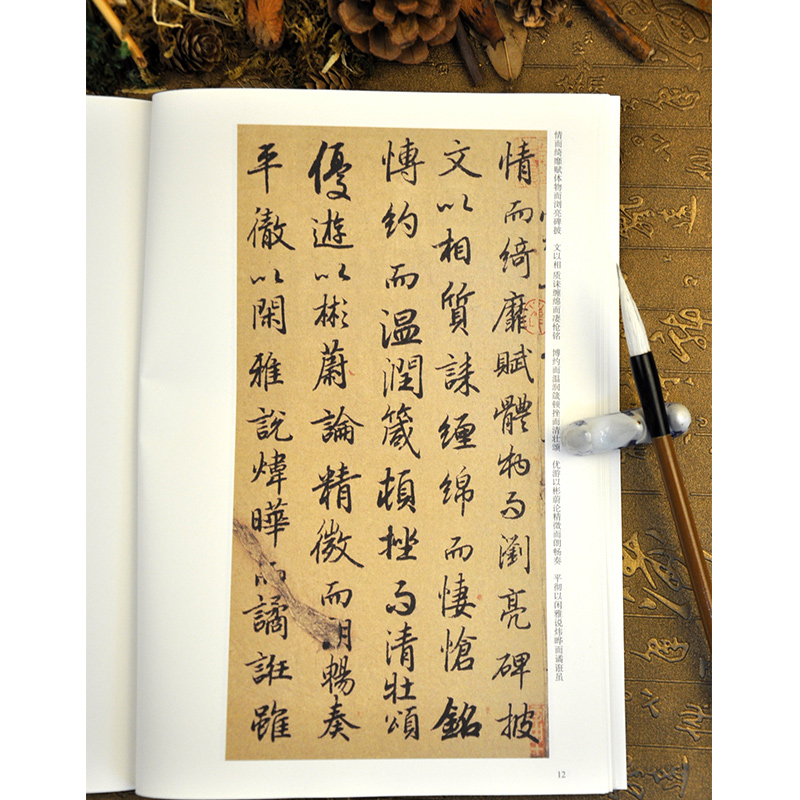 情而绮靡赋体物而浏亮碑披 文以相质诔缠绵而凄怆铭 博约而温润箴顿挫而清壮颂 优游以彬蔚论精微而朗畅奏 平彻以闲雅说炜晔而谲诳虽
情而綺靡賦體物而瀏亮碑披
文以相質誄纏綿而悽愴銘
愽約而温潤箴頓挫而清壯頌
優遊以彬蔚論精微而朗暢奏
平徹以閑雅說煒曄而譎誑雖
12